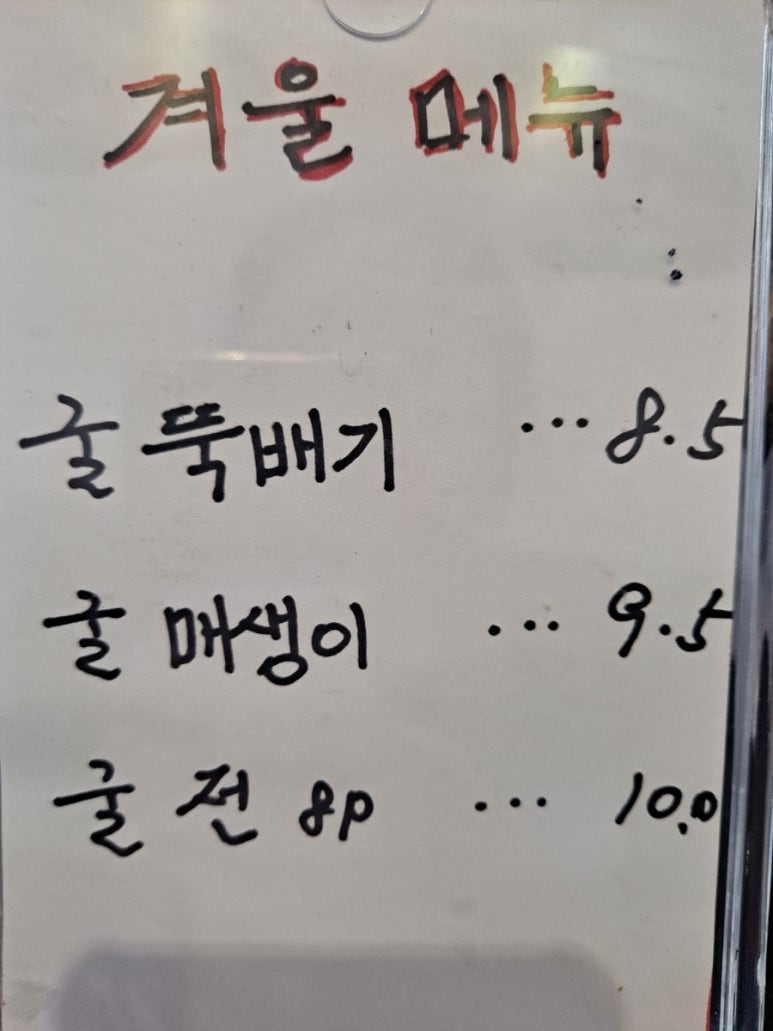 겨울 메뉴
굴 뚝배기 ... 8.5
굴 매생이 ... 9.5
굴 전 8p ... 10.0